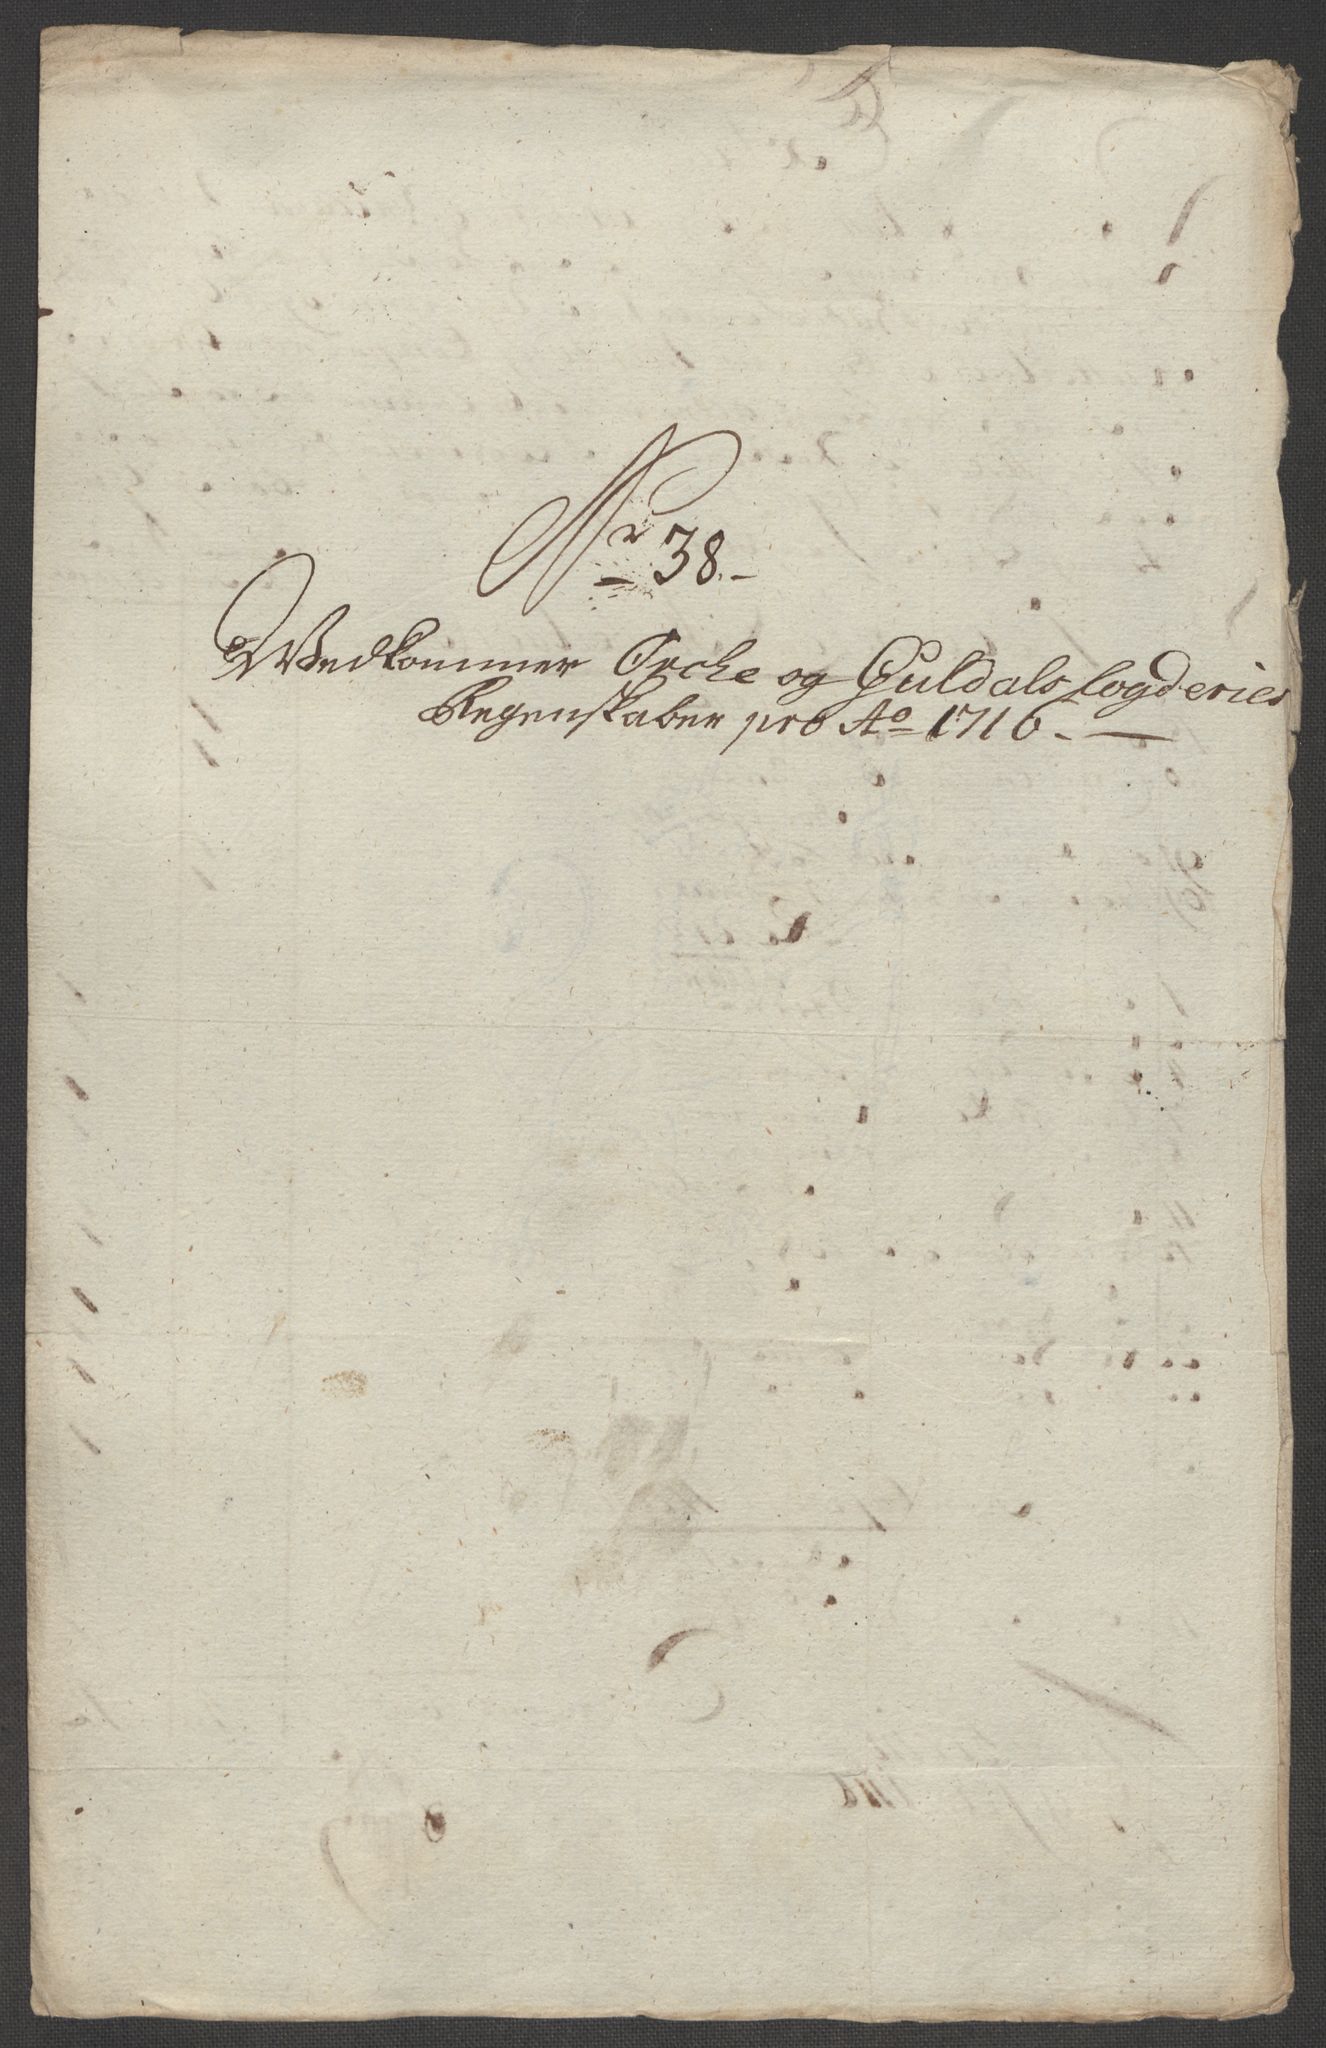 Nr 38.
Wedkommer Orche og Guldals fogderies
Regenskaber pro Ao 1716.